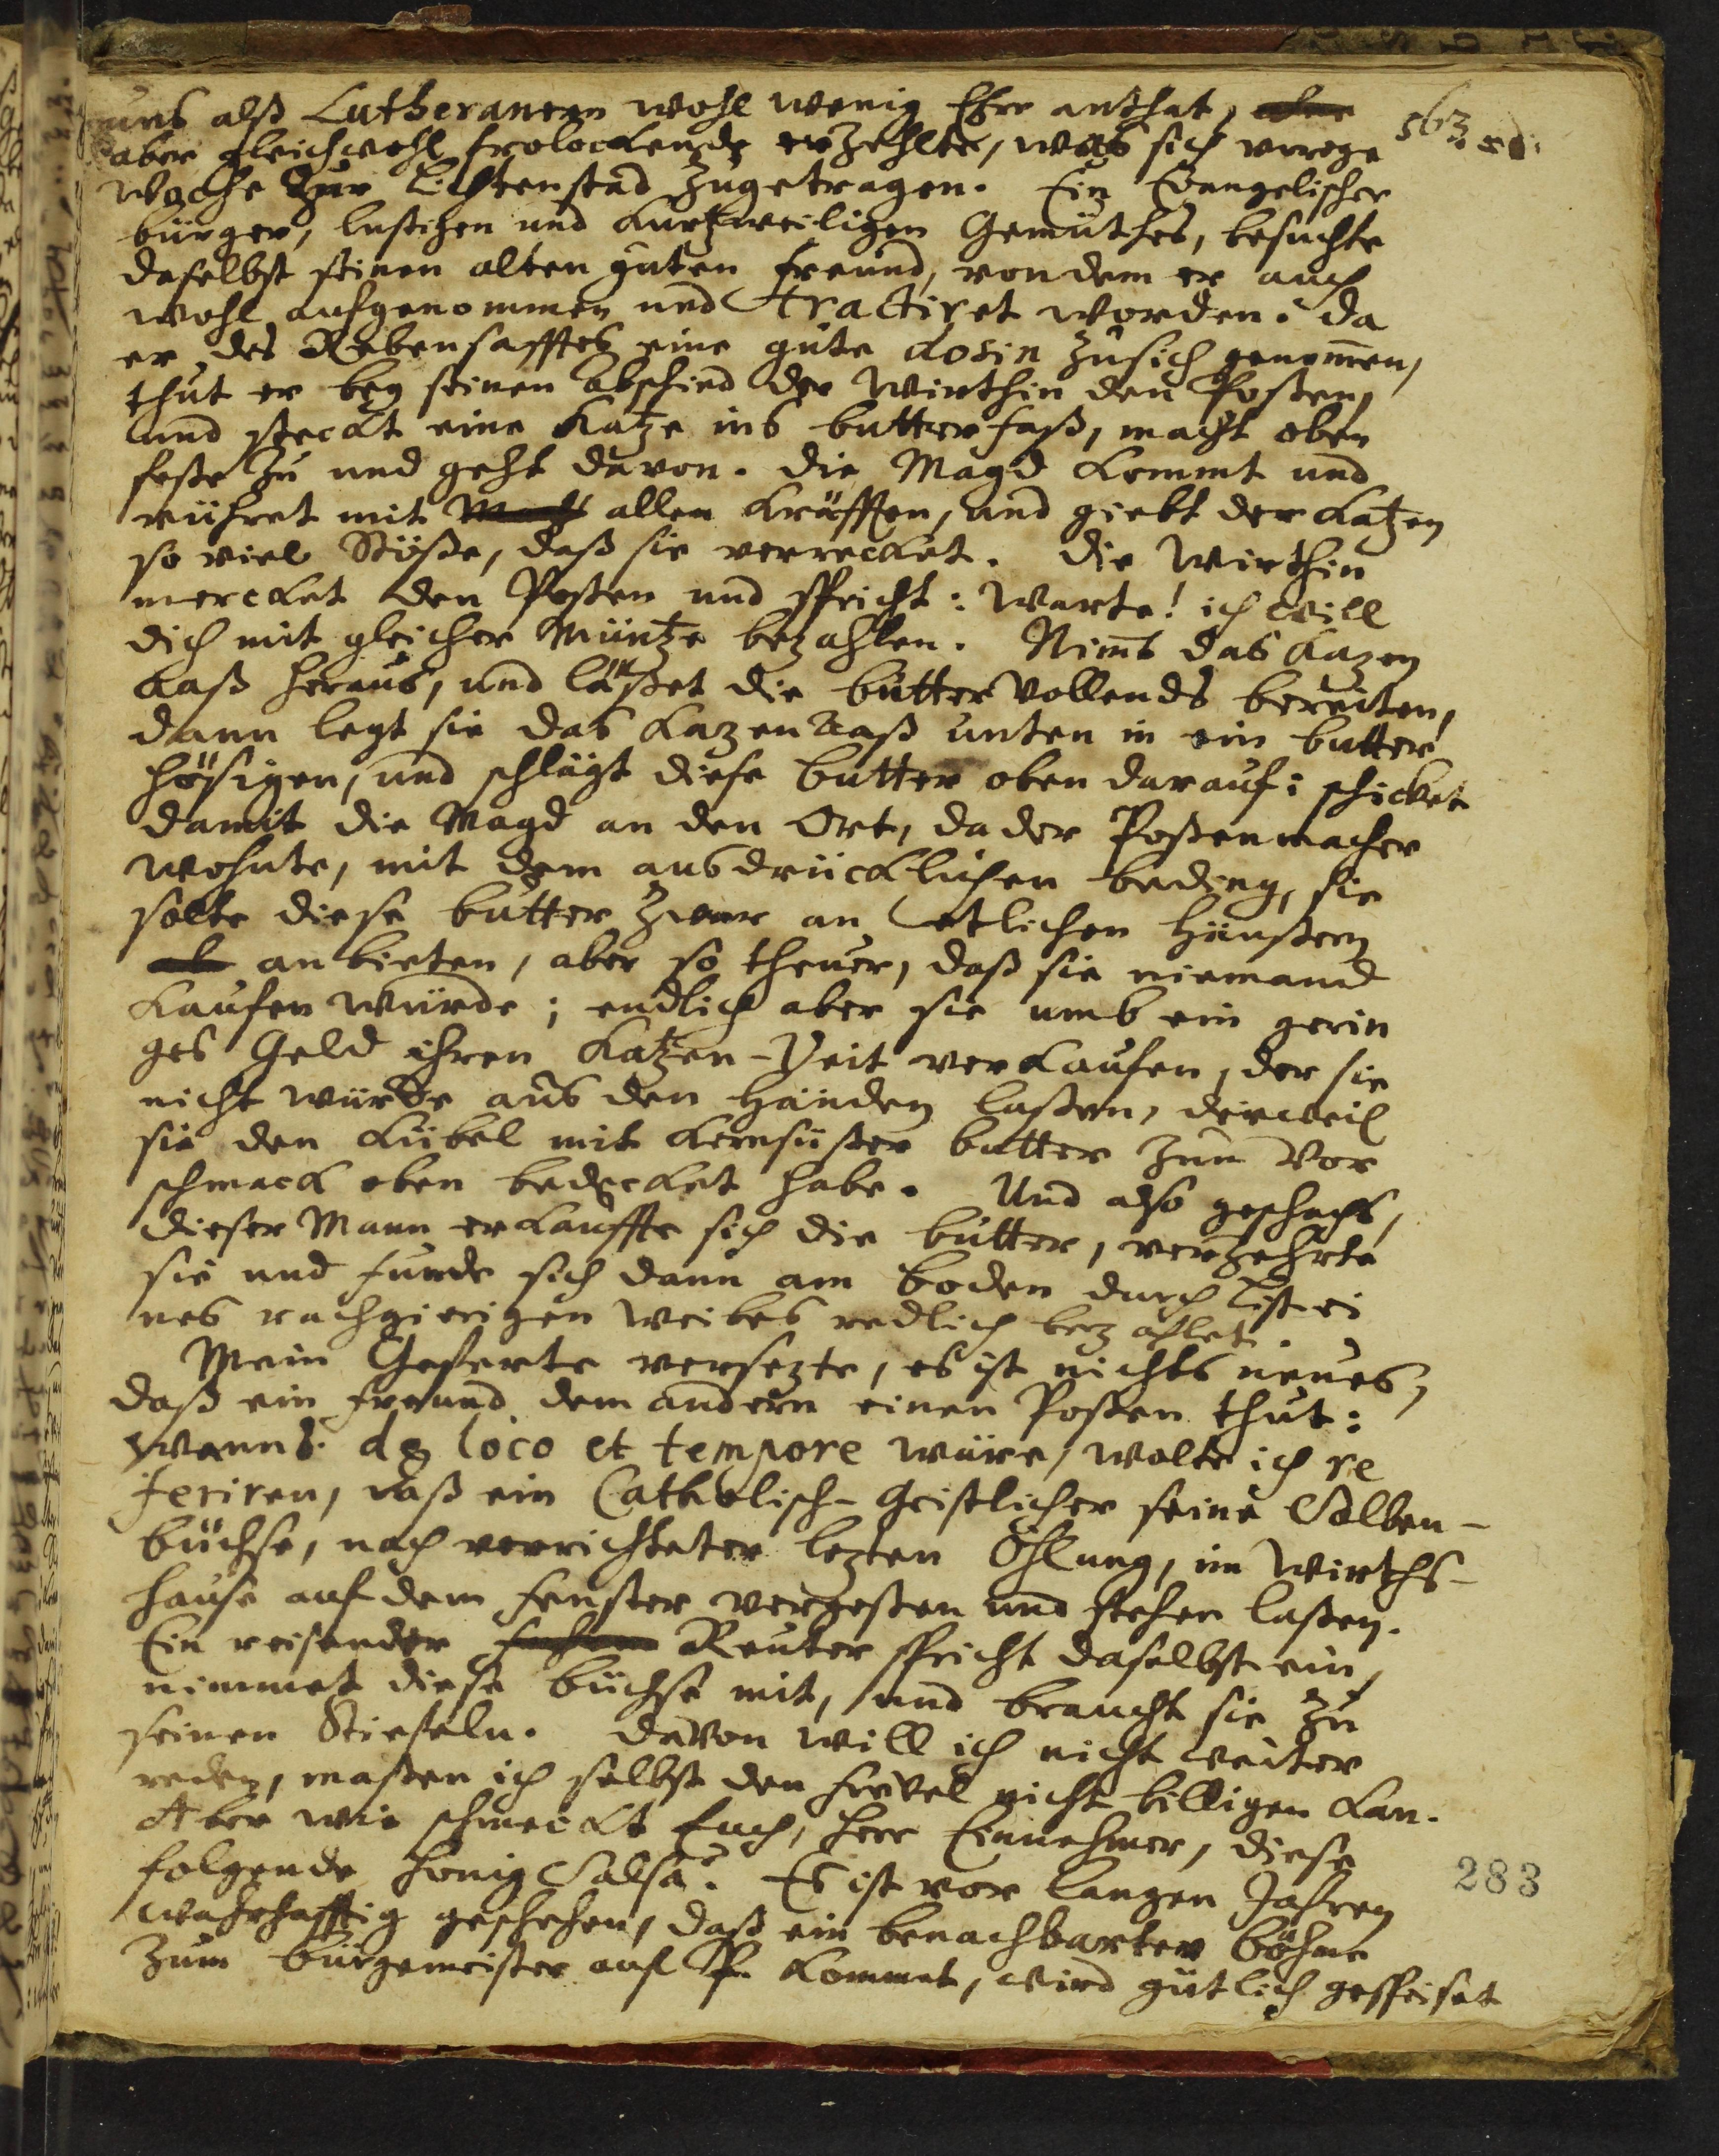 uns alß Lutheranern wohl wenig Ehre anthat,
563
aber gleichwohl frolockende erzehlte, was sich vorige
Woche zur Lichtenstad zugetragen. Ein Evangelischer
bürger, lustigen und kurtzweiligen Gemüthes, besuchte
daselbst seinen alten guten Freund, von dem er auch
wohl aufgenommen und tractiret worden. Da
er des Rebensafftes eine gute dosin zu sich genom̄en,
thut er beg seinen Abschied der Wirthin den Poßen,
und steckt eine Katze ins butterfaß, macht oben
feste zu und geht davon. Die Magd kommt und
rühret mit allen Kräfften, und giebt der Katzen
so viel Stöße, daß sie verrecket. Die Wirthin
mercket den Poßen und spricht: Warte! ich will
dich mit gleicher Müntze bezahlen. Nim̄t das Kazen
Aaß heraus, und läßet die butter vollends bereiten,
dann legt sie das Kazen Aaß unten in ein butter
und schlägt diese butter oben darauf: schicket
damit die Magd an den Ort, da der Poßenmacher
wohnte, mit dem ausdrücklichen beding, sie
solte diese butter zwar an etlichen Häußern
anbieten, aber so theuer, daß sie niemand
kaufen würde; endlich aber sie umb ein gerin
ges Geld ihren Katzen-Veit verkaufen, der sie
nicht würde aus den Händen laßen, dieweil
sie den Kübel mit kernsüßer butter zum Vor
schmack oben bedecket habe. Und also geschahs,
dieser Mann erkauffte sich die butter, verzehrte
sie und funde sich dann am boden durch List ei
nes rachgierigen Weibes redlich bezahlet.
Mein Geferte versezte, es ist nichts neues,
daß ein Freund dem andern einen Poßen thut:
wanns de loco et tempore wäre, wolte ich re
feriren, daß ein Catholisch-Geistlicher seine Salben-
büchse, nach verrichteter lezten Öhlung, im Wirths-
hause auf dem Fenster vergeßen und stehen laßen.
Ein reisender Reuter spricht daselbst ein,
nimmet diese büchse mit, und braucht sie zu
seinen Stiefeln. Davon will ich nicht weiter
reden, maßen ich selbst den Frevel nicht billigen kan.
Aber wie schmeckt Euch, Herr Einnehmer, diese
folgende Honig Salsa? Es ist vor langen Jahren
283
wahrhafftig geschehen, daß ein benachbarter böhme
zum bürgemeister auf kommet, wird gütlich gespeiset